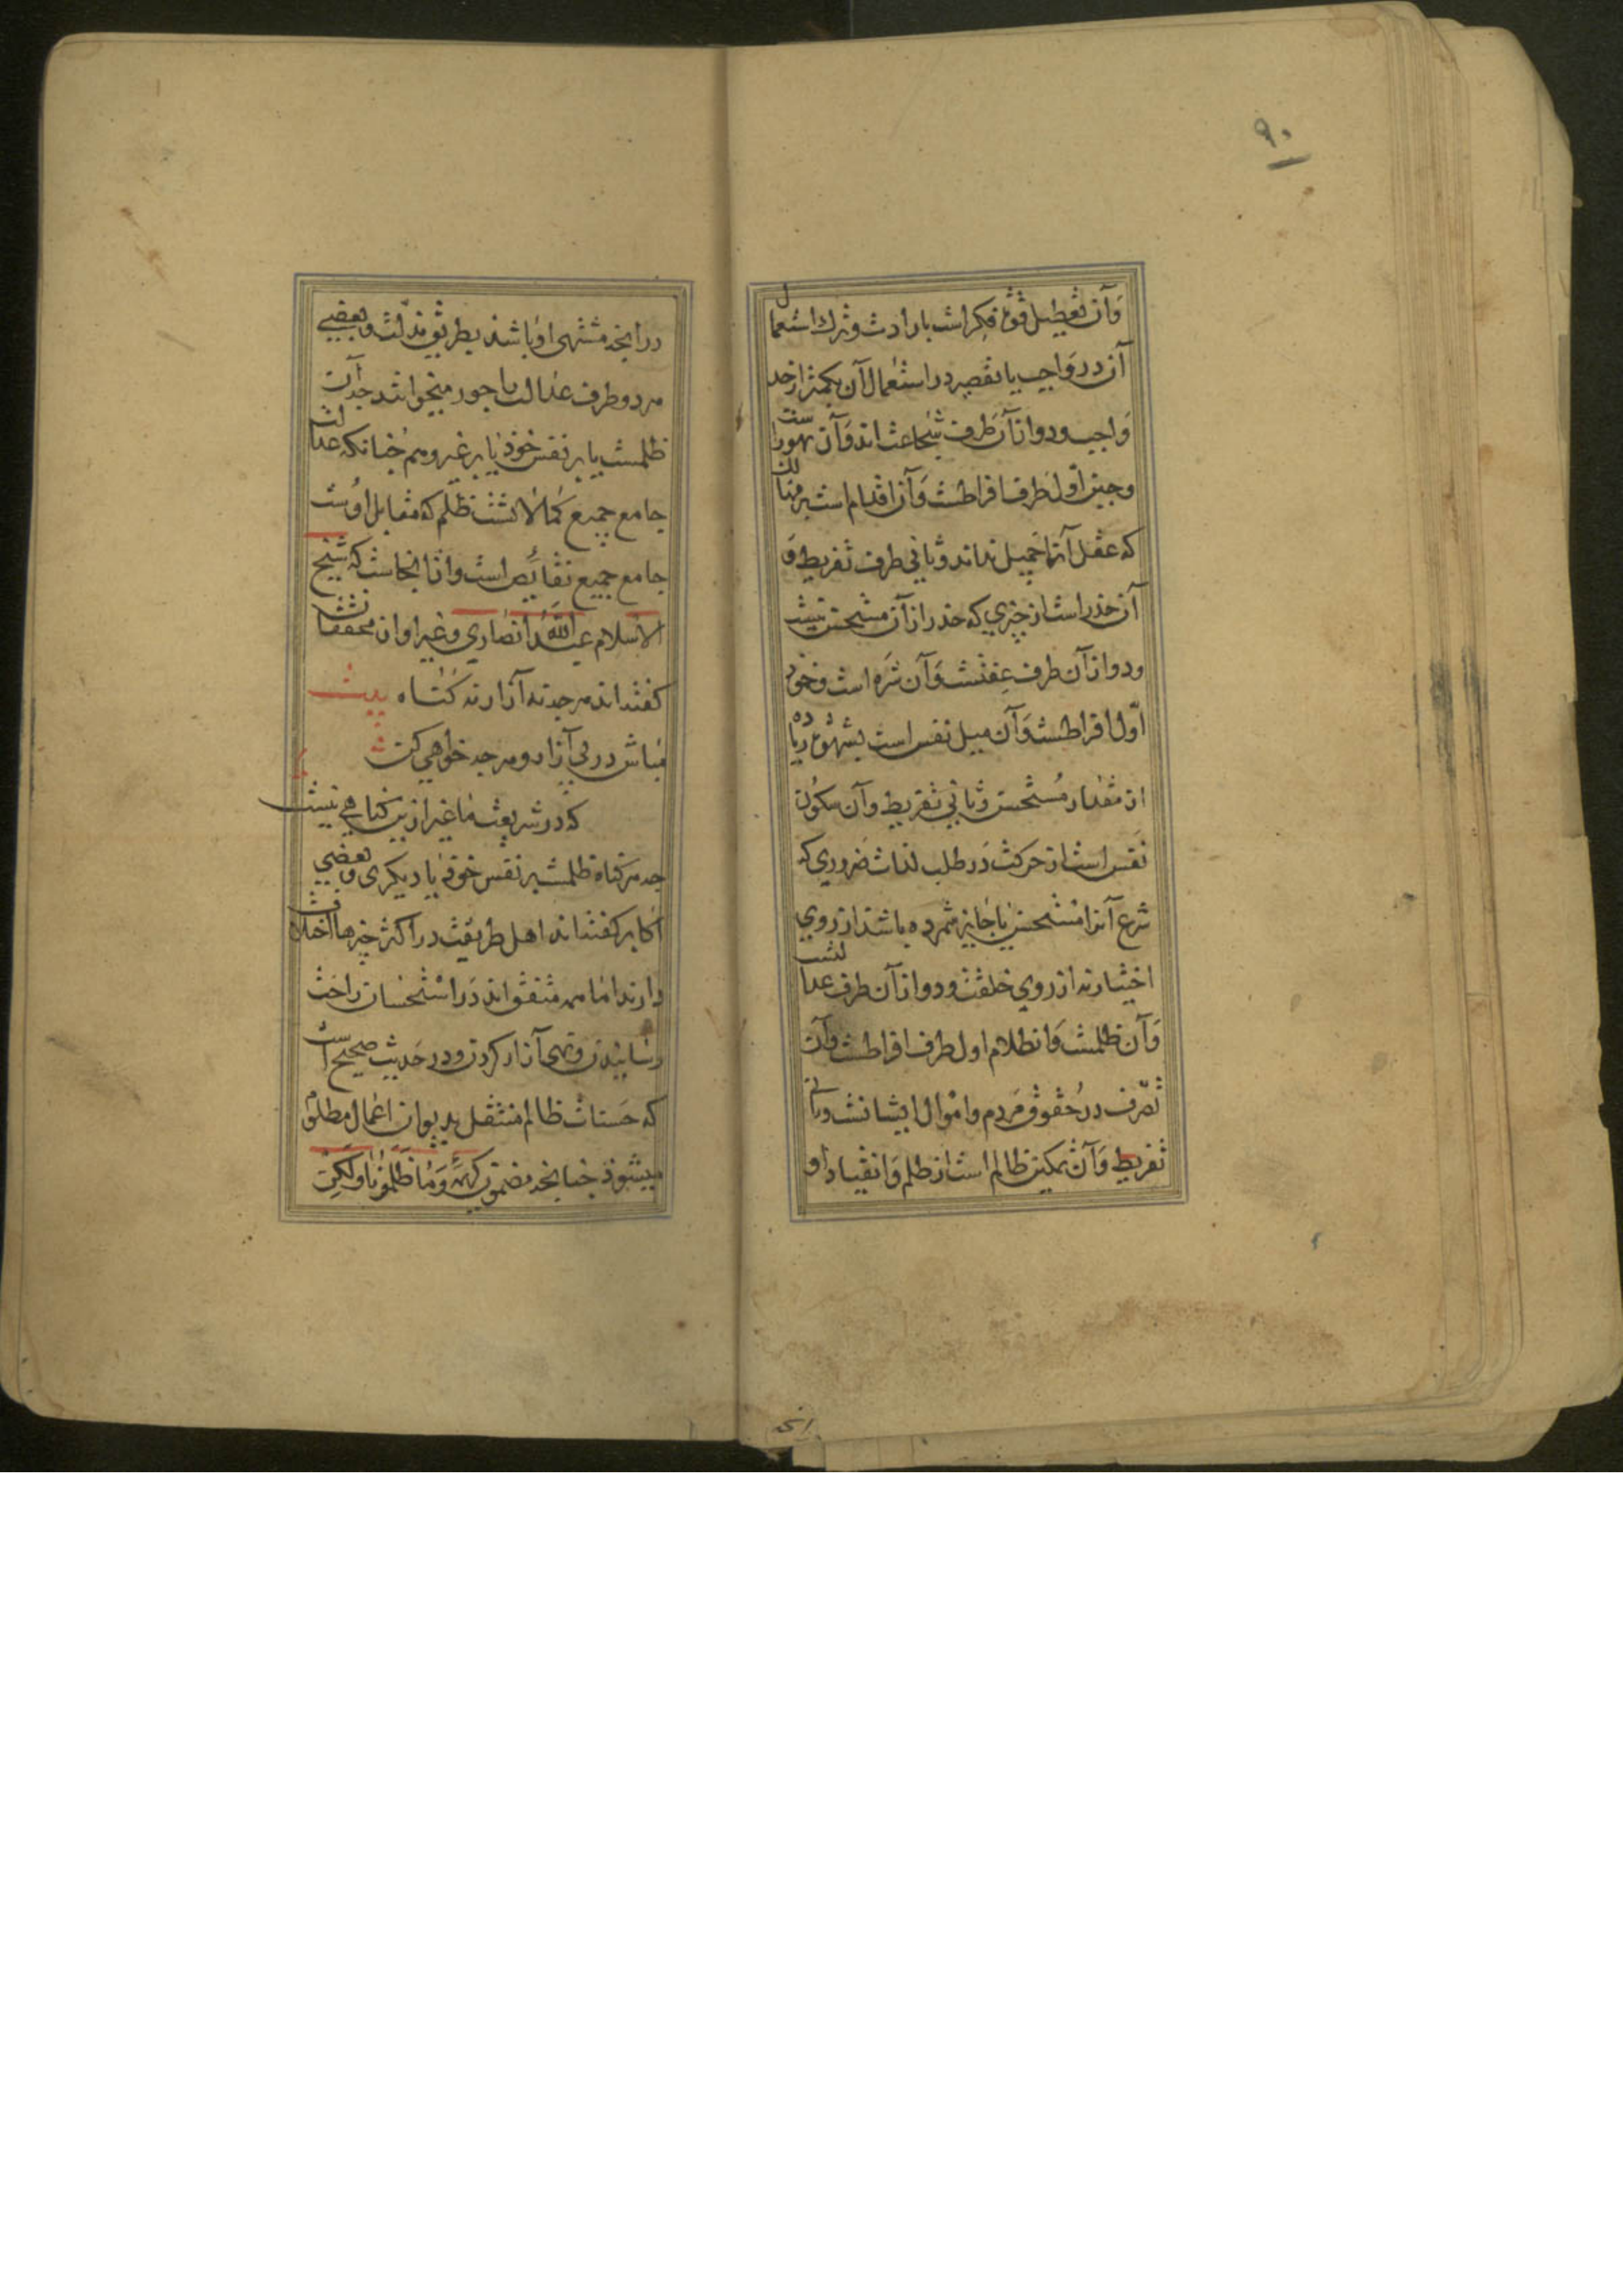 ۹۰
وآن تعطیل قوة فکر است بارادت وترک استعمال
آن در واجب یا تقصیر در استعمال آن بکمتر از حد
واجب ودو از آن طرف شجاعت اند وآن تهورست
وجبن اول طرف افراطست وآن اقدام است بر مهالک
که عقل آنرا جمیل نداند وثانی طرف تفریط و
آن حذر است از چیزی که حذر از آن مستحسن نیست
ودو از آن طرف عفتست وآن شره است وخمود
اول افراطست وآن میل نفس است بشهوة زیاده
از مقدار مستحسن وثانی تفریط وآن سکون
نفس است از حرکت در طلب لذات ضروری که
شرع آنرا مستحسن یا جایز شمرده باشد از روی
اختیار نه از روی خلقت ودو از آن طرف عدالتست
وآن ظلمست وانظلام اول طرف افراطست وآن
تصرف در حقوق مردم واموال ایشانست وثانی
تفریط وآن تمکین ظالم است از ظلم وانقیاد او
در انچه مشتهی او باشد بطریق مذلت وبعضی
هر دو طرف عدالت را جور میخوانند چه آن
ظلمست یا بر نفس خود یا بر غیر وهم چنانکه عدالت
جامع جمیع کمالاتست ظلم که مقابل اوست
جامع جمیع نقایص است واز انجاست که شیخ
الاسلام عبدالله انصاری وغیر او از محققان
گفته اند هر چه نه آزار نه گناه بیت
مباش در پی آزار وهر چه خواهی کن
که در شریعت ما غیر ازین گناهی نیست
چه هر گناه ظلمست بر نفس خود یا دیگری وبعضی
اکابر گفته اند اهل طریقت در اکثر چیزها اختلاف
دارند اما همه متفق اند در استحسان راحت
رسانیدن ونهی آزار کردن ودر حدیث صحیح است
که حسنات ظالم منتقل بدیوان اعمال مظلوم
میشود چنانچه مضمون کریمه وما ظلمونا ولکن